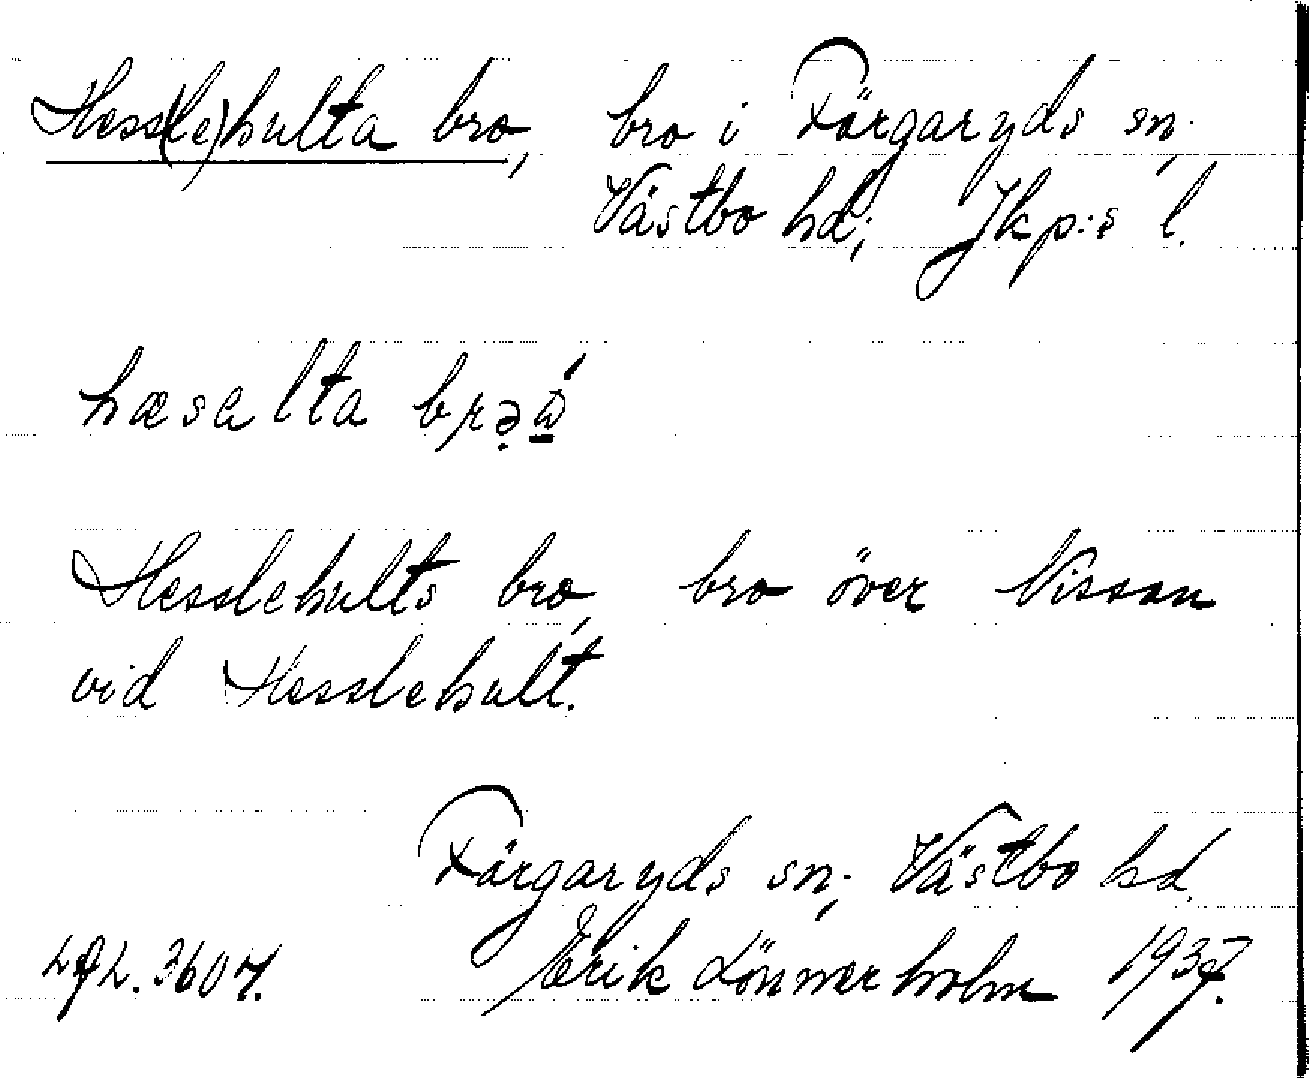 Hess(le)hulta bro, bro i Färgaryds sn,
Västbo hd, Jkp:s l.
hæsalta
Hesslehults bro, bro över Nissan
vid Hesslehult.
Färgaryds sn, Västbo hd.
Erik Lönnerholm 1937.